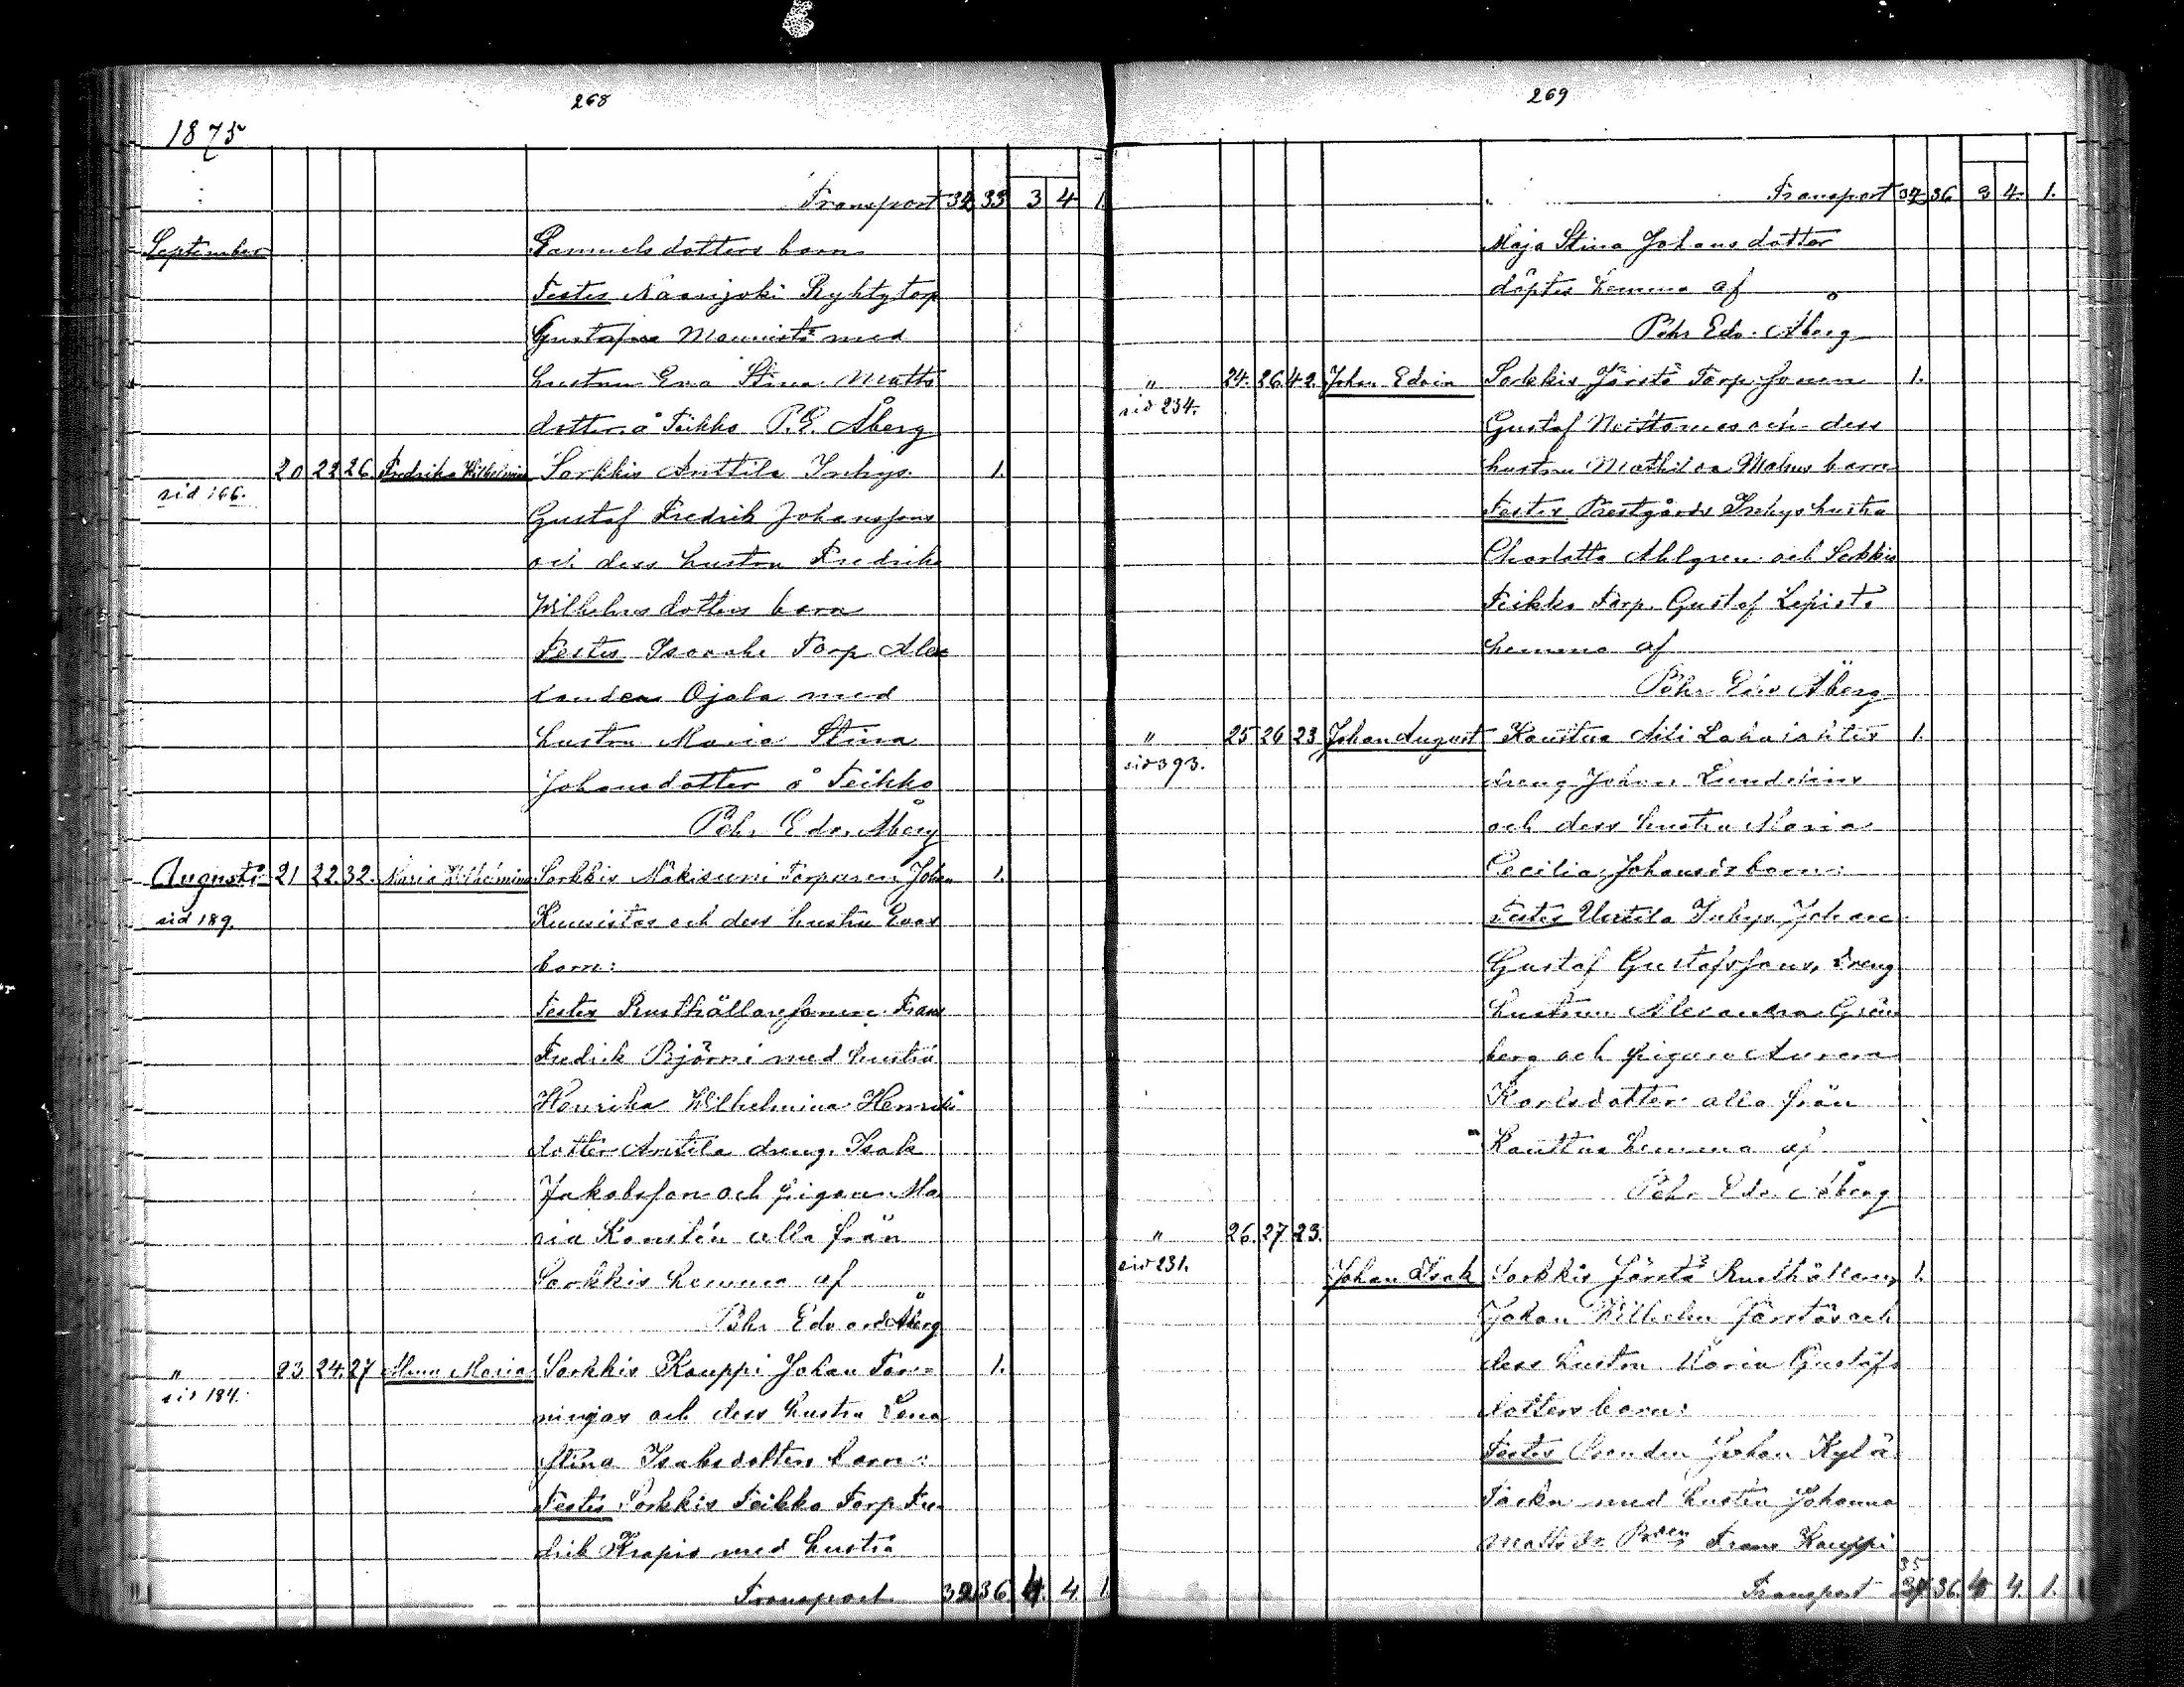 268
1875
Transport 32 33 3 4 1.
September
Samuels dotters barn
Testes Naarijoki Ryhtytorp
Gustaf Mannistö med
hustrun Eva Stina Matts
dotter å Teikko P. E. Åberg
20 22 26. Fredrika Wilhelmina Sorkkis Anttila Inhys. 1.
sid 166.
Gustaf Fredrik Johanssons
och dess hustru Fredrika
Wilhelmsdotters barn
Testes Torp Alex
Ojala med
hustru Maria Stina
Johansdotter å Teikko
Pehr Edv. Åberg
Augusti 21 22. 32. Maria Wilhelmina Sorkkis Mäkisuni Torparen Johan 1.
sid 189.
Kuusistos och dess hustru Evas
barn:
Testes Rusthållaresonen Frans
Fredrik Björni med hustru
Henrika Wilhelmina Henriks
dotter Antila dreng. Isak
Jakobsson och pigan Ma
ria Konstén alla från
Sorkkis hemma af
Pehr Edvard Åberg
" 23 24. 27 Maria Sorkkis Kauppi Johan Tan= 1.
sid 184.
ningas och dess hustru Lena
Stina Isaksdotters barn:
Testes Sorkkis Teikko Torp. Fre
drik Krapis med hustru
Transport 32 36 4. 4. 1.
269
Transport 34 36 3 4. 1.
Maja Stina Johansdotter
döptes hemma af
Pehr Edv. Åberg
" 24. 26 42. Johan Edvin Sorkkis Järstä Torp. sonen 1.
sid 234.
Gustaf och dess
hustru Mathilda barn
Testes Prestgårds Inhys hustru
Charlotta Ahlgren och Sorkkis
Teikko Torp. Gustaf Lepistö
hemma af
Pehr Edv Åberg
" 25 26 23 Johan August Kauttua 1.
sid 393.
dreng Johan Lundelins
och dess hustru Maria
Cecilia Johansds barn:
Testes Uotila Inhys. Johan
Gustaf Gustafssons, dreng
hustrun Alexandra Grön
berg och pigan Aurora
Karlsdotter alla från
Kauttua hemma af
Pehr Edv. Åberg
" 26. 27 23.
sid 231.
Johan Isak Sorkkis Järstä Rusthållaren 1.
Johan Wilhelm Järstäs och
dess hustru Maria Gustafs
dotters barn:
Testes Bonden Johan Kylä
med hustru Johanna
Matts dr Frans Kauppi
35
Transport 34 36. 4 4. 1.